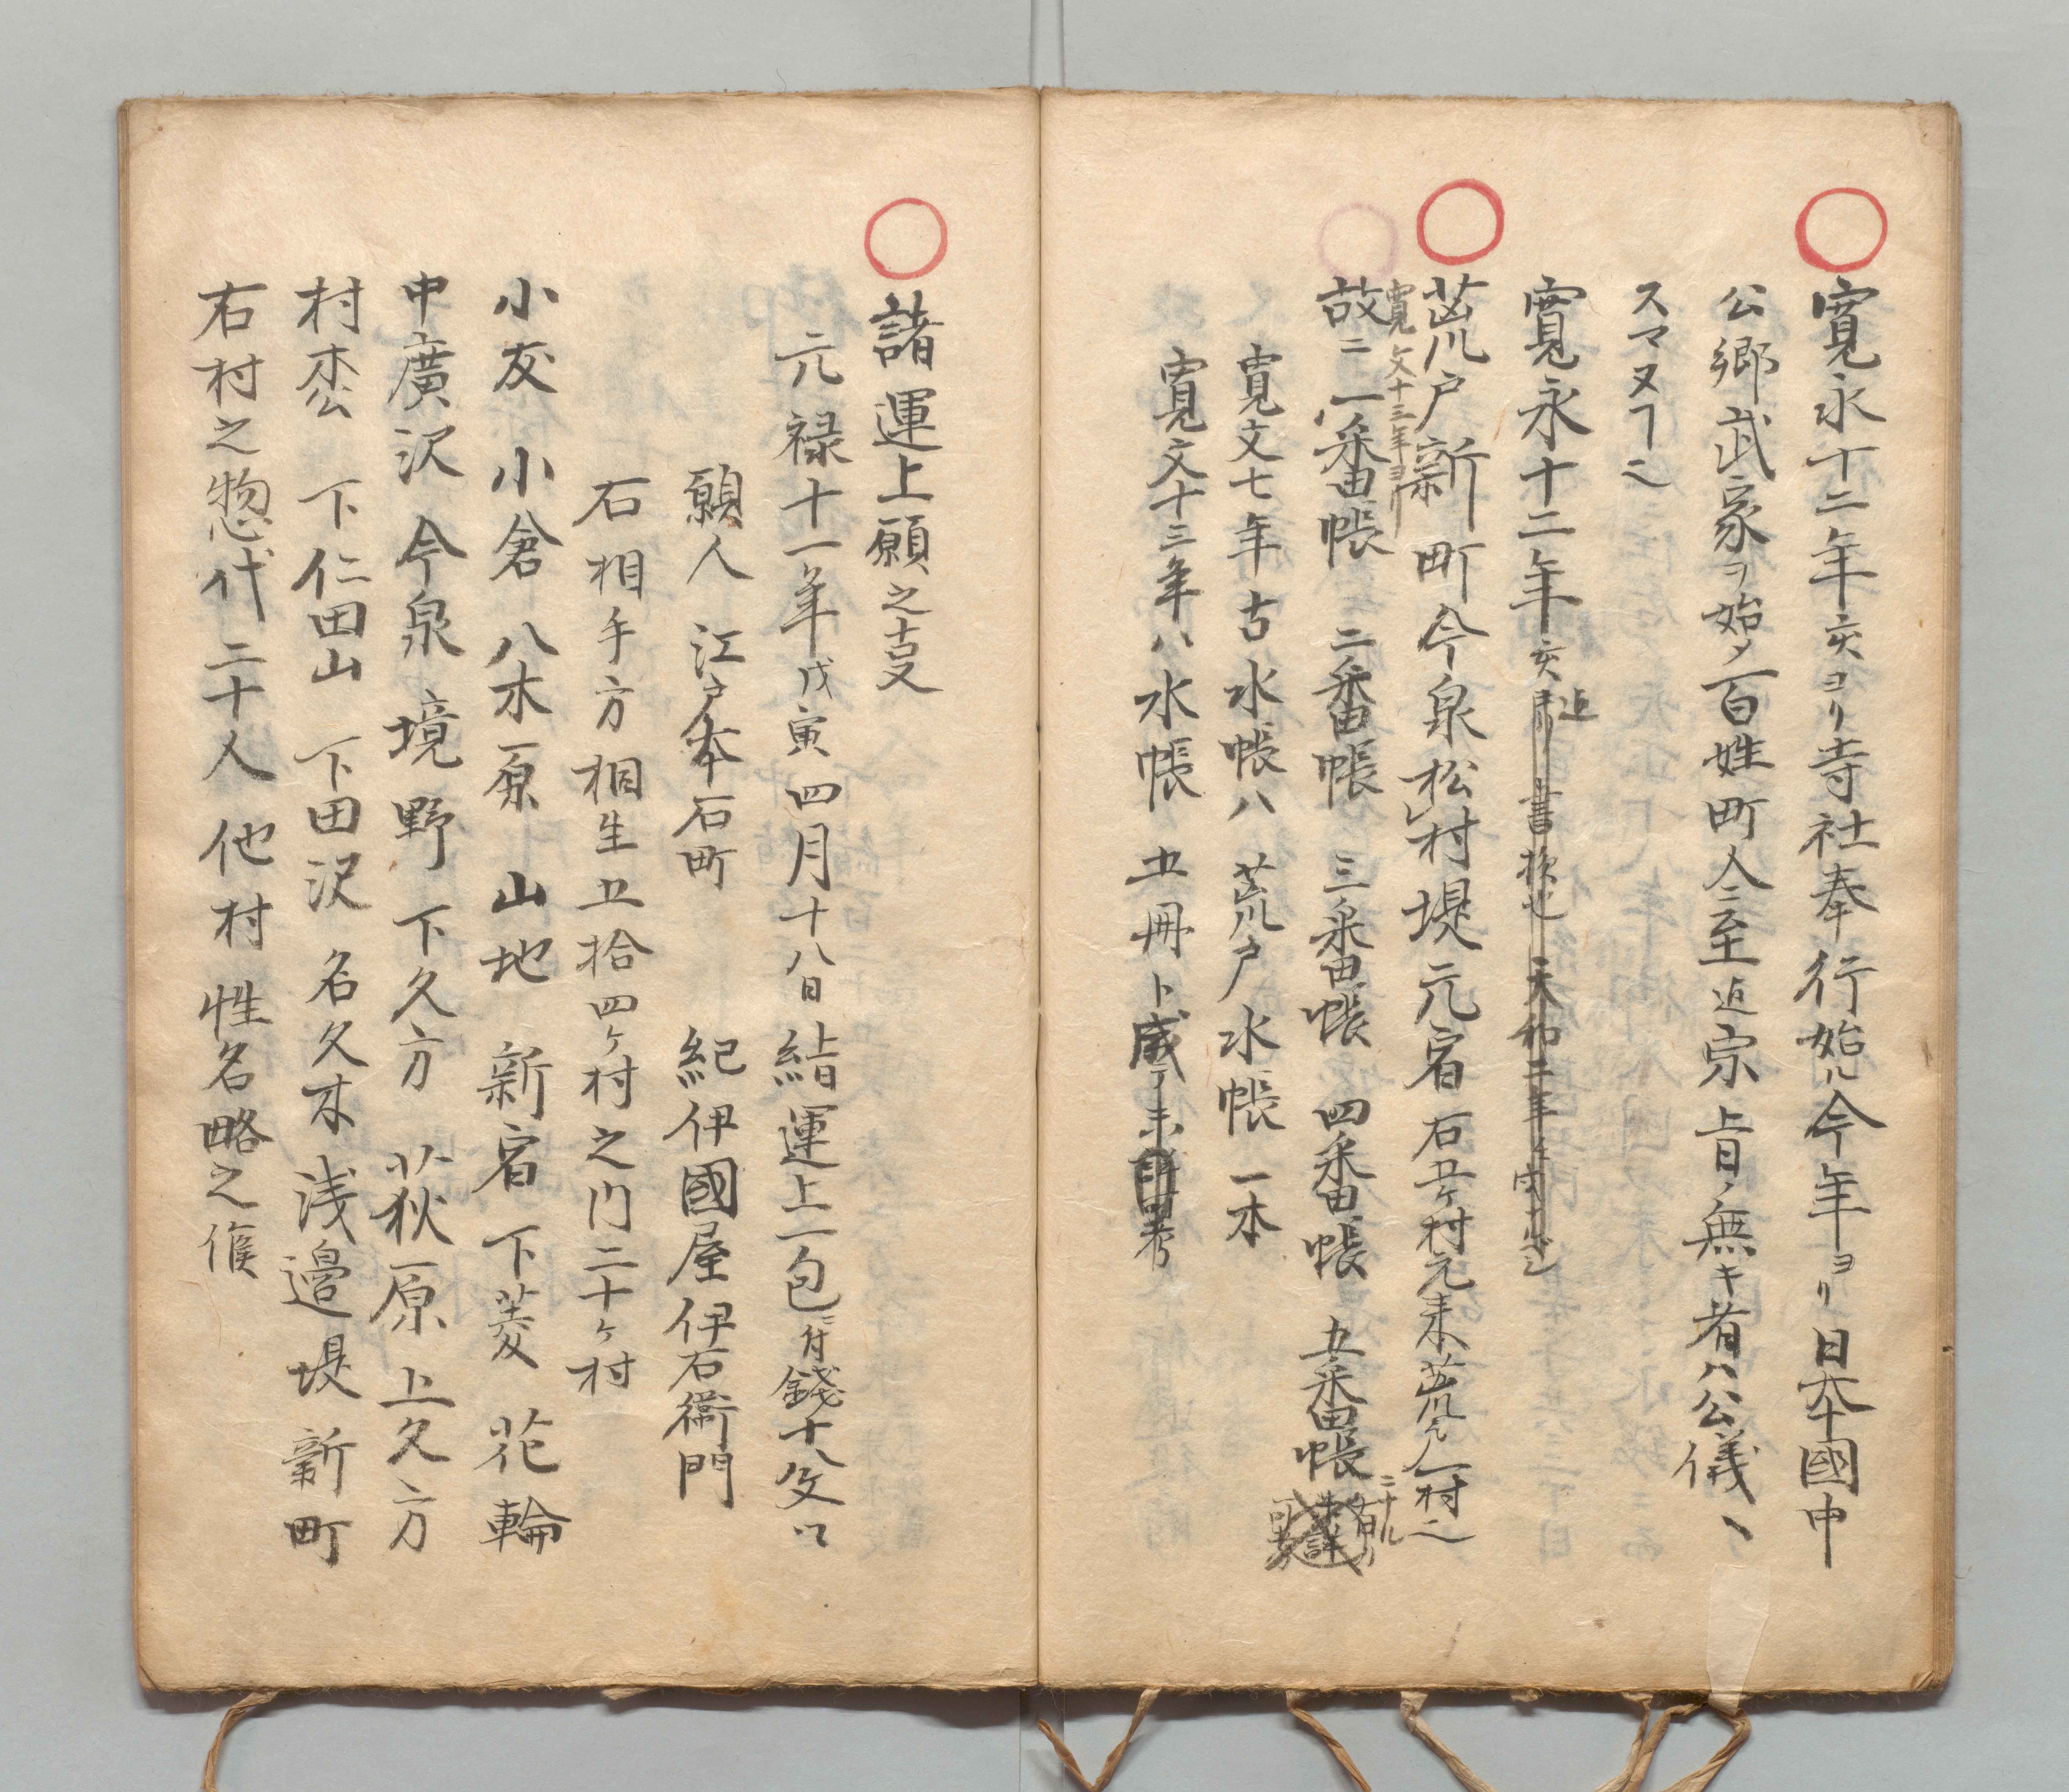 寛永十二年亥ヨリ寺社奉行始ル今年ヨリ日本國中
公郷武家ヲ始メ百姓町人ニ至迠宗旨ノ無キ者ハ公儀ヘ
スマヌヿニ
寛永十二年亥
荒戸新町今泉松村堤元宿右五ケ村元来荒戸ノ一村ニ
寛文十三年ヨリ
故ニ一番帳 二番帳 三番帳 四番帳 五番帳
寛文七年古水帳ハ 荒戸水帳一本
寛文十三年ハ水帳五冊ト成ル
諸運上願之支
元禄十一年戊寅四月十八日絹運上一包ニ付錢十八文ツ
願人 江戸本石町 紀伊國屋伊右衛門
右相手方相生五拾四ケ村之内二十ケ村
小友 小倉 八木原 山地 新宿 下菱 花輪
中廣沢 今泉 境野 下久方 荻原 上久方
村松 下仁田山 下田沢 名久木 浅邉 堤 新町
右村之惣代二十人他村性名略之候